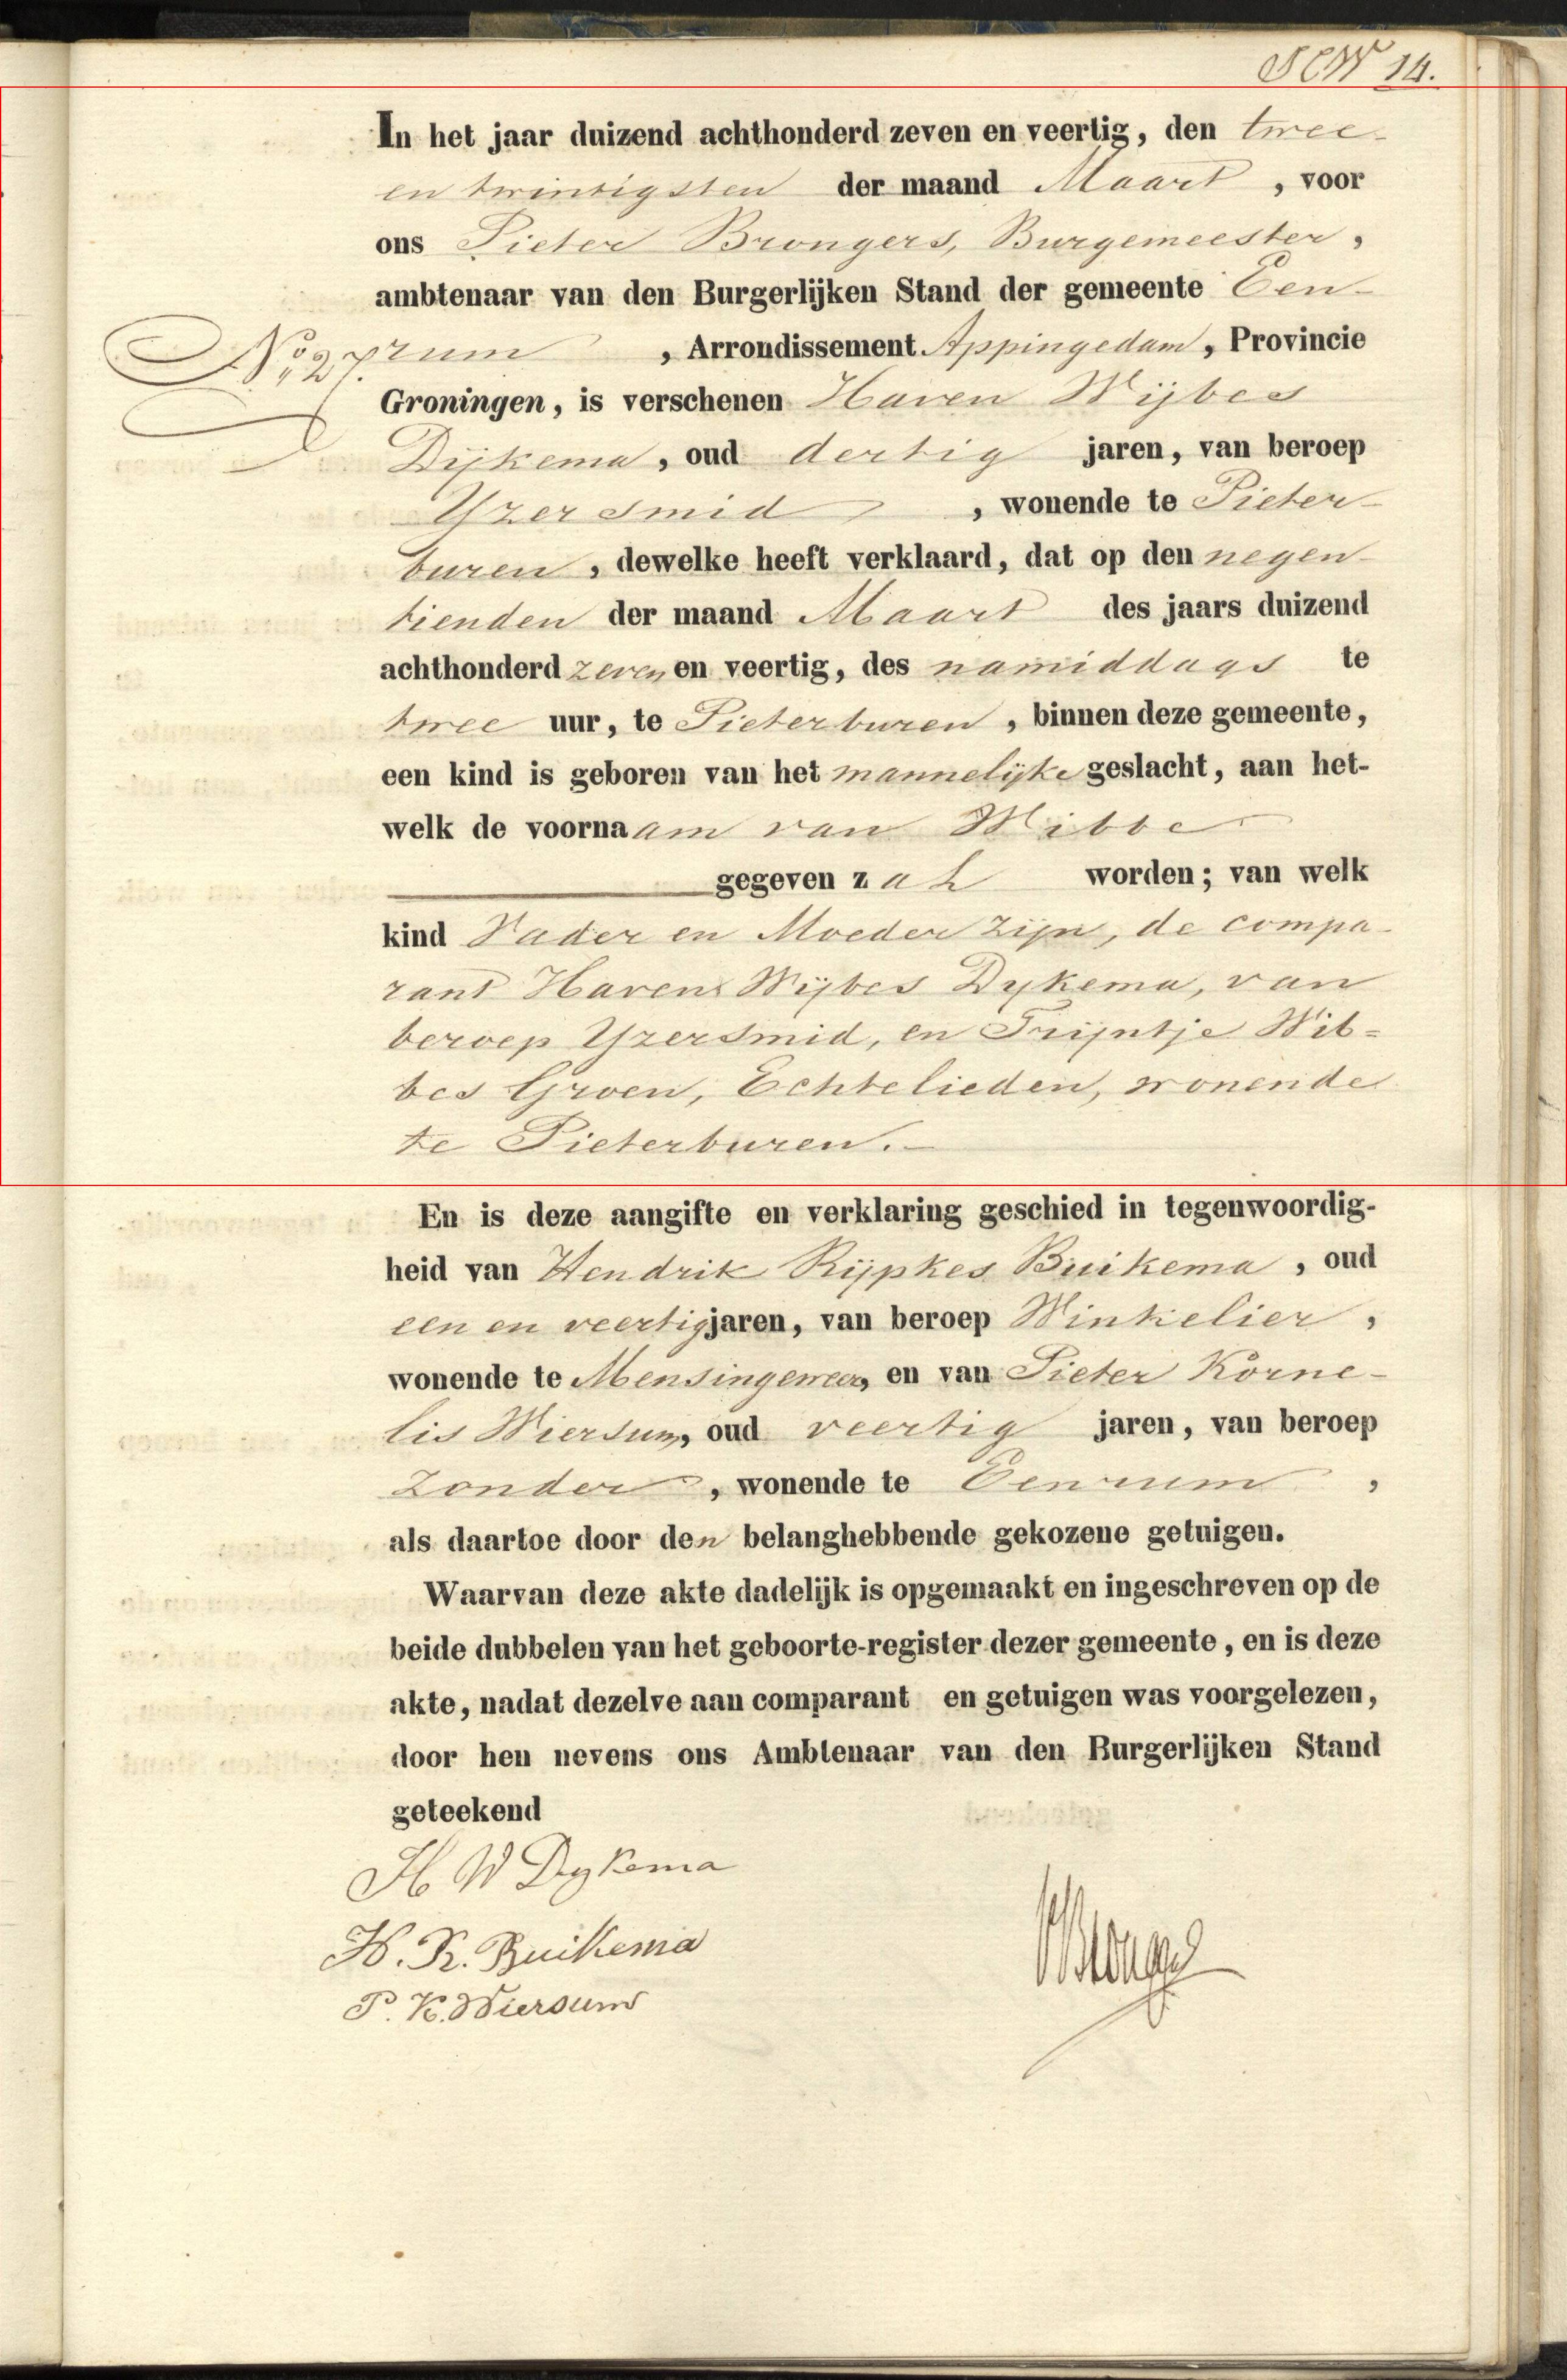 SCW 14.
In het jaar duizend achthonderd zeven en veertig, den twee-
en twintigsten der maand Maart, voor
ons Pieter Brongers, Burgemeester,
ambtenaar van den Burgerlijken Stand der gemeente Een-
No. 27. rum, Arrondissement Appingedam, Provincie
Groningen, is verschenen Haven Wijbes
Dijkema, oud dertig jaren, van beroep
Yzersmid, wonende te Pieter-
buren, dewelke heeft verklaard, dat op den negen-
tienden der maand Maart des jaars duizend
achthonderd zeven en veertig, des namiddags te
twee uur, te Pieterburen, binnen deze gemeente,
een kind is geboren van het mannelijke geslacht, aan het-
welk de voornaam van Wibbe
gegeven zal worden; van welk
kind Vader en Moeder zijn, de compa-
rant Haven Wijbes Dykema, van
beroep Yzersmid, en Trijntje Wib=
bes Groen, Echtelieden, wonende
te Pieterburen.-
En is deze aangifte en verklaring geschied in tegenwoordig-
heid van Hendrik Rijpkes Buikema, oud
een en veertig jaren, van beroep Winkelier,
wonende te Mensingeweer, en van Pieter Korne-
lis Wiersum, oud veertig jaren, van beroep
zonder, wonende te Eenrum,
als daartoe door den belanghebbende gekozene getuigen.
Waarvan deze akte dadelijk is opgemaakt en ingeschreven op de
beide dubbelen van het geboorte-register dezer gemeente, en is deze
akte, nadat dezelve aan comparant en getuigen was voorgelezen,
door hen nevens ons Ambtenaar van den Burgerlijken Stand
geteekend
H W Dykema
H. R. Buikema
P Brongers
P. K. Wiersum